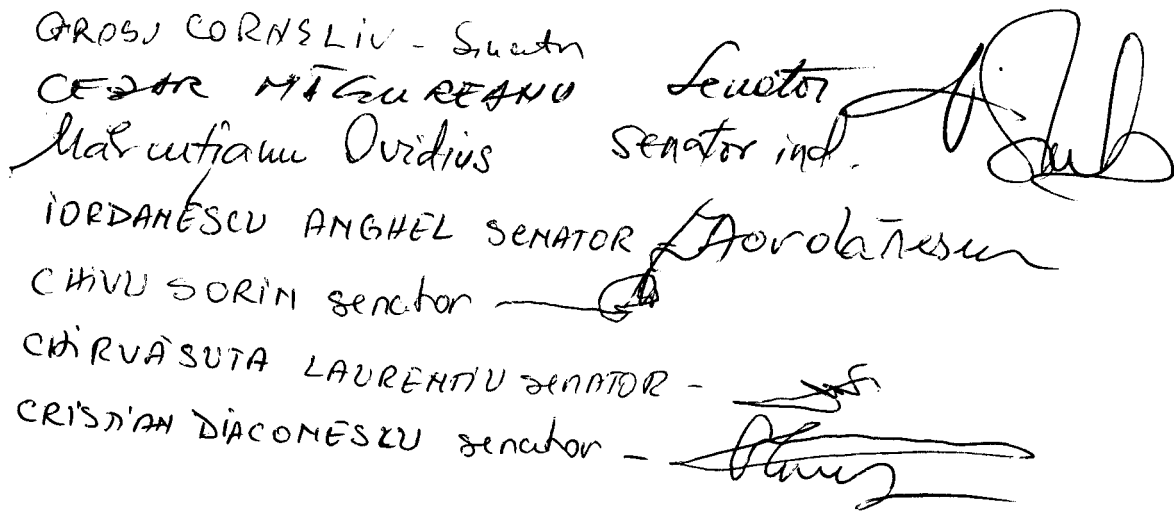 GROSU CORNELIU - Senator
CEZAR MĂGUREANU Senator
Mărcuțianu Ovidius senator ind.
IORDĂNESCU ANGHEL SENATOR Aordănescu
CHIVU SORIN senator
CHIRVĂSUTA LAURENTIU SENATOR -
CRISTIAN DIACONESCU senator -